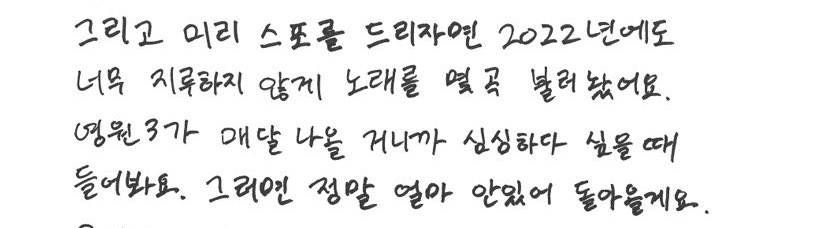 그리고 미리 스포를 드리자면 2022년에도
너무 지루하지 않게 노래를 몇 곡 불러 놨어요.
영원3가 매달 나올 거니까 심심하다 싶을 때
들어봐요. 그러면 정말 얼마 안있어 돌아올게요.